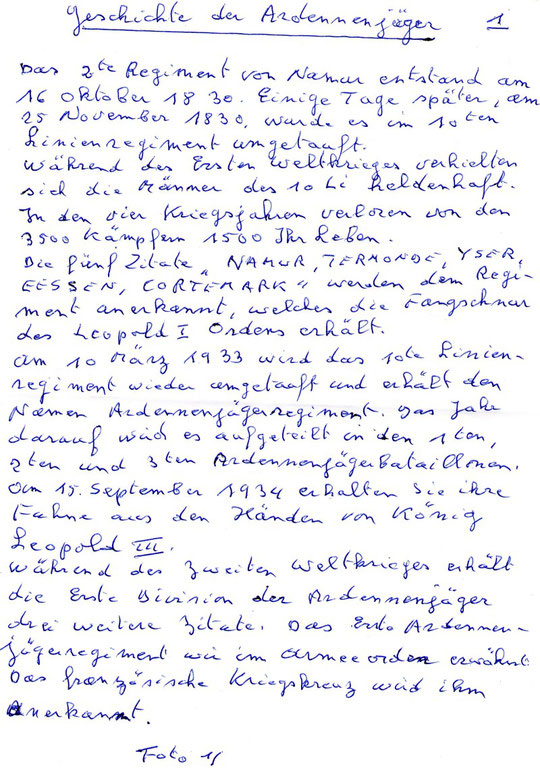 Geschichte der Ardennenjäger 1
Das 2te Regiment von Namur entstand am
16 Oktober 1830. Einige Tage später, am
25 November 1830, wurde es im 10ten
Linienregiment umgetauft.
Während des Ersten Weltkrieges verhielten
sich die Männer des 10 Li heldenhaft.
In den vier Kriegsjahren verloren von den
3500 Kämpfern 1500 Ihr Leben.
Die fünf Zitate „NAMUR, TERMONDE, YSER,
EESSEN, CORTEMARK" werden dem Regi-
ment anerkannt, welches die Fangschnur
des Leopold I Ordens erhält.
Am 10 März 1933 wird das 10te Linien-
regiment wieder umgetauft und erhält den
Namen Ardennenjägerregiment. Das Jahr
darauf wird es aufgeteilt in den 1ten,
2ten und 3ten Ardennenjägerbataillonen.
Am 15. September 1934 erhalten Sie ihre
Fahne aus den Händen von König
Leopold III.
Während des Zweiten Weltkrieges erhält
die Erste Division der Ardennenjäger
drei weitere Zitate. Das Erste Ardennen-
jägerregiment wir im Armeeorden erwähnt
Das französische Kriegskreuz wird ihm
Anerkannt.
Foto 1